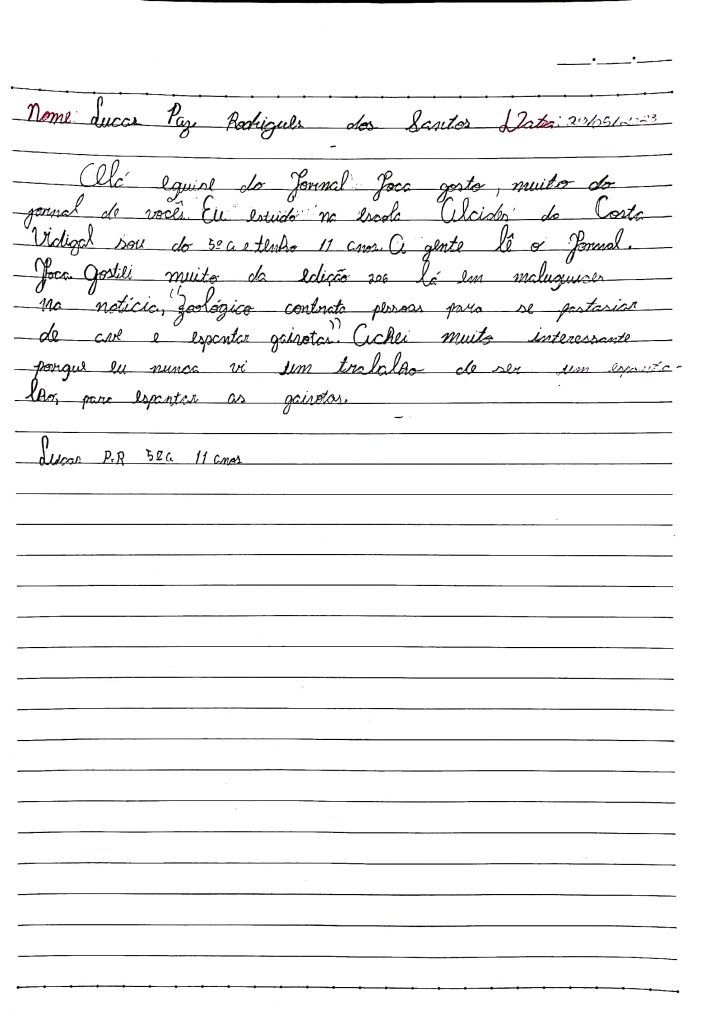 Nome: Lucas Paz Rodrigues dos Santos Data: 29/05/2023
Olá equise do Jornal Joca gosto, muito do
jornal de vocês. Eu estudo na escola Alcides da Costa
Vidigal sou do 5º a e tenho 11 anos. A gente lê o Jornal.
Joca Gostei muito da edição 206 lá em maluquises
na notícia, "Zoológico contrata pessoas para se fantasiar
de ave e espantar gaivotas" Achei muito interessante
porque eu nunca vi um trabalho de ser um espanta-
lho, para espantar as gaivotas.
Lucas P.R 5º a 11 anos